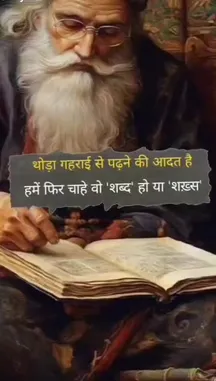 थोड़ा गहराई से पढ़ने की आदत है
हमें फिर चाहे वो 'शब्द' हो या 'शख़्स'